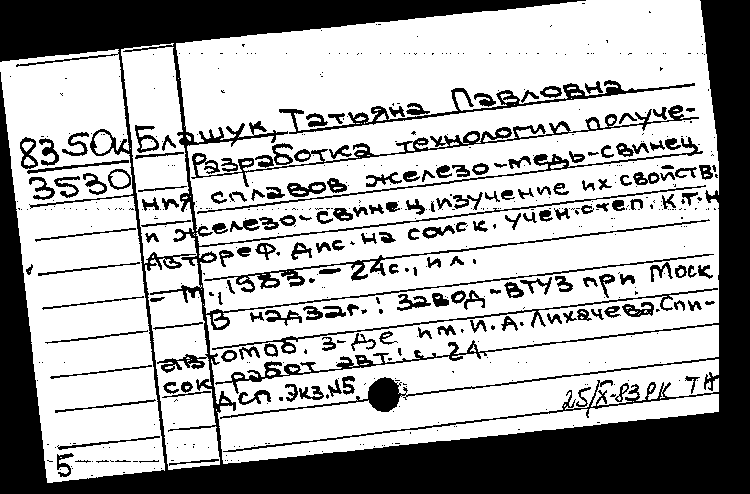 Блашук, Татьяна Павловна.
83-50к
3530
Разработка технологии получе-
ния сплавов железо-медь-свинец
и железо-свинец, изучение их свойств:
Автореф. дис. на соиск. учен. степ. к.т.н
- М., 1983. - 24с., ил.
В надзаг.: Завод-ВТУЗ при Моск.
автомоб. з-де им. И.А. Лихачева. Спи-
сок работ авт.: с. 24.
ДСП. Экз. №5.
25/X-83 РК ТН
5